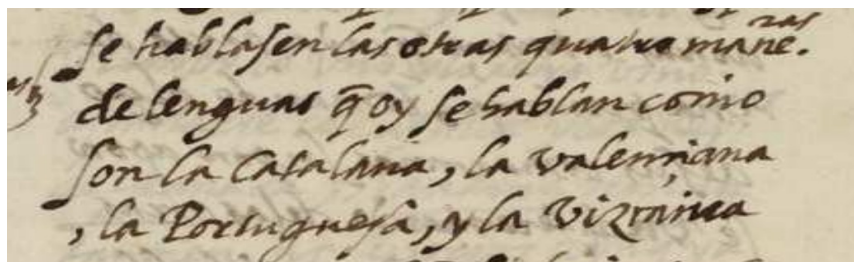 se hablasen las otras quatro mane.ras
de lenguas q̄ oy se hablan como
son la Catalana, la valenciana
, la Portuguesa, y la vizcaina